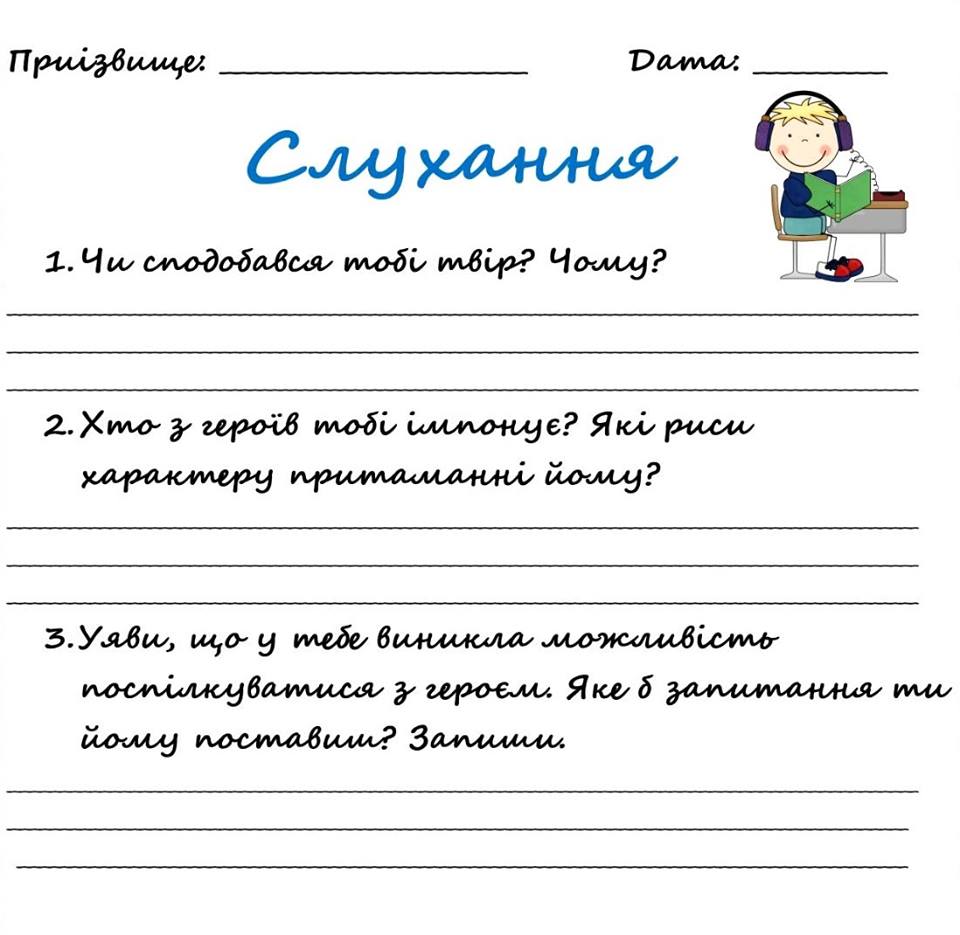 Приізвище: __________________ Дата: ________
Слухання
1. Чи сподобався тобі твір? Чому?
2. Хто з героїв тобі імпонує? Які риси
характеру притаманні йому?
3. Уяви, що у тебе виникла можливість
поспілкуватися з героєм. Яке б запитання ти
йому поставиш? Запиши.